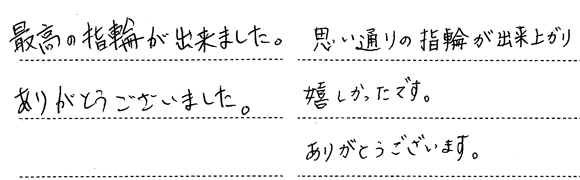 最高の指輪が出来ました。
ありがとうございました。
思い通りの指輪が出来上がり
嬉しかったです。
ありがとうございます。